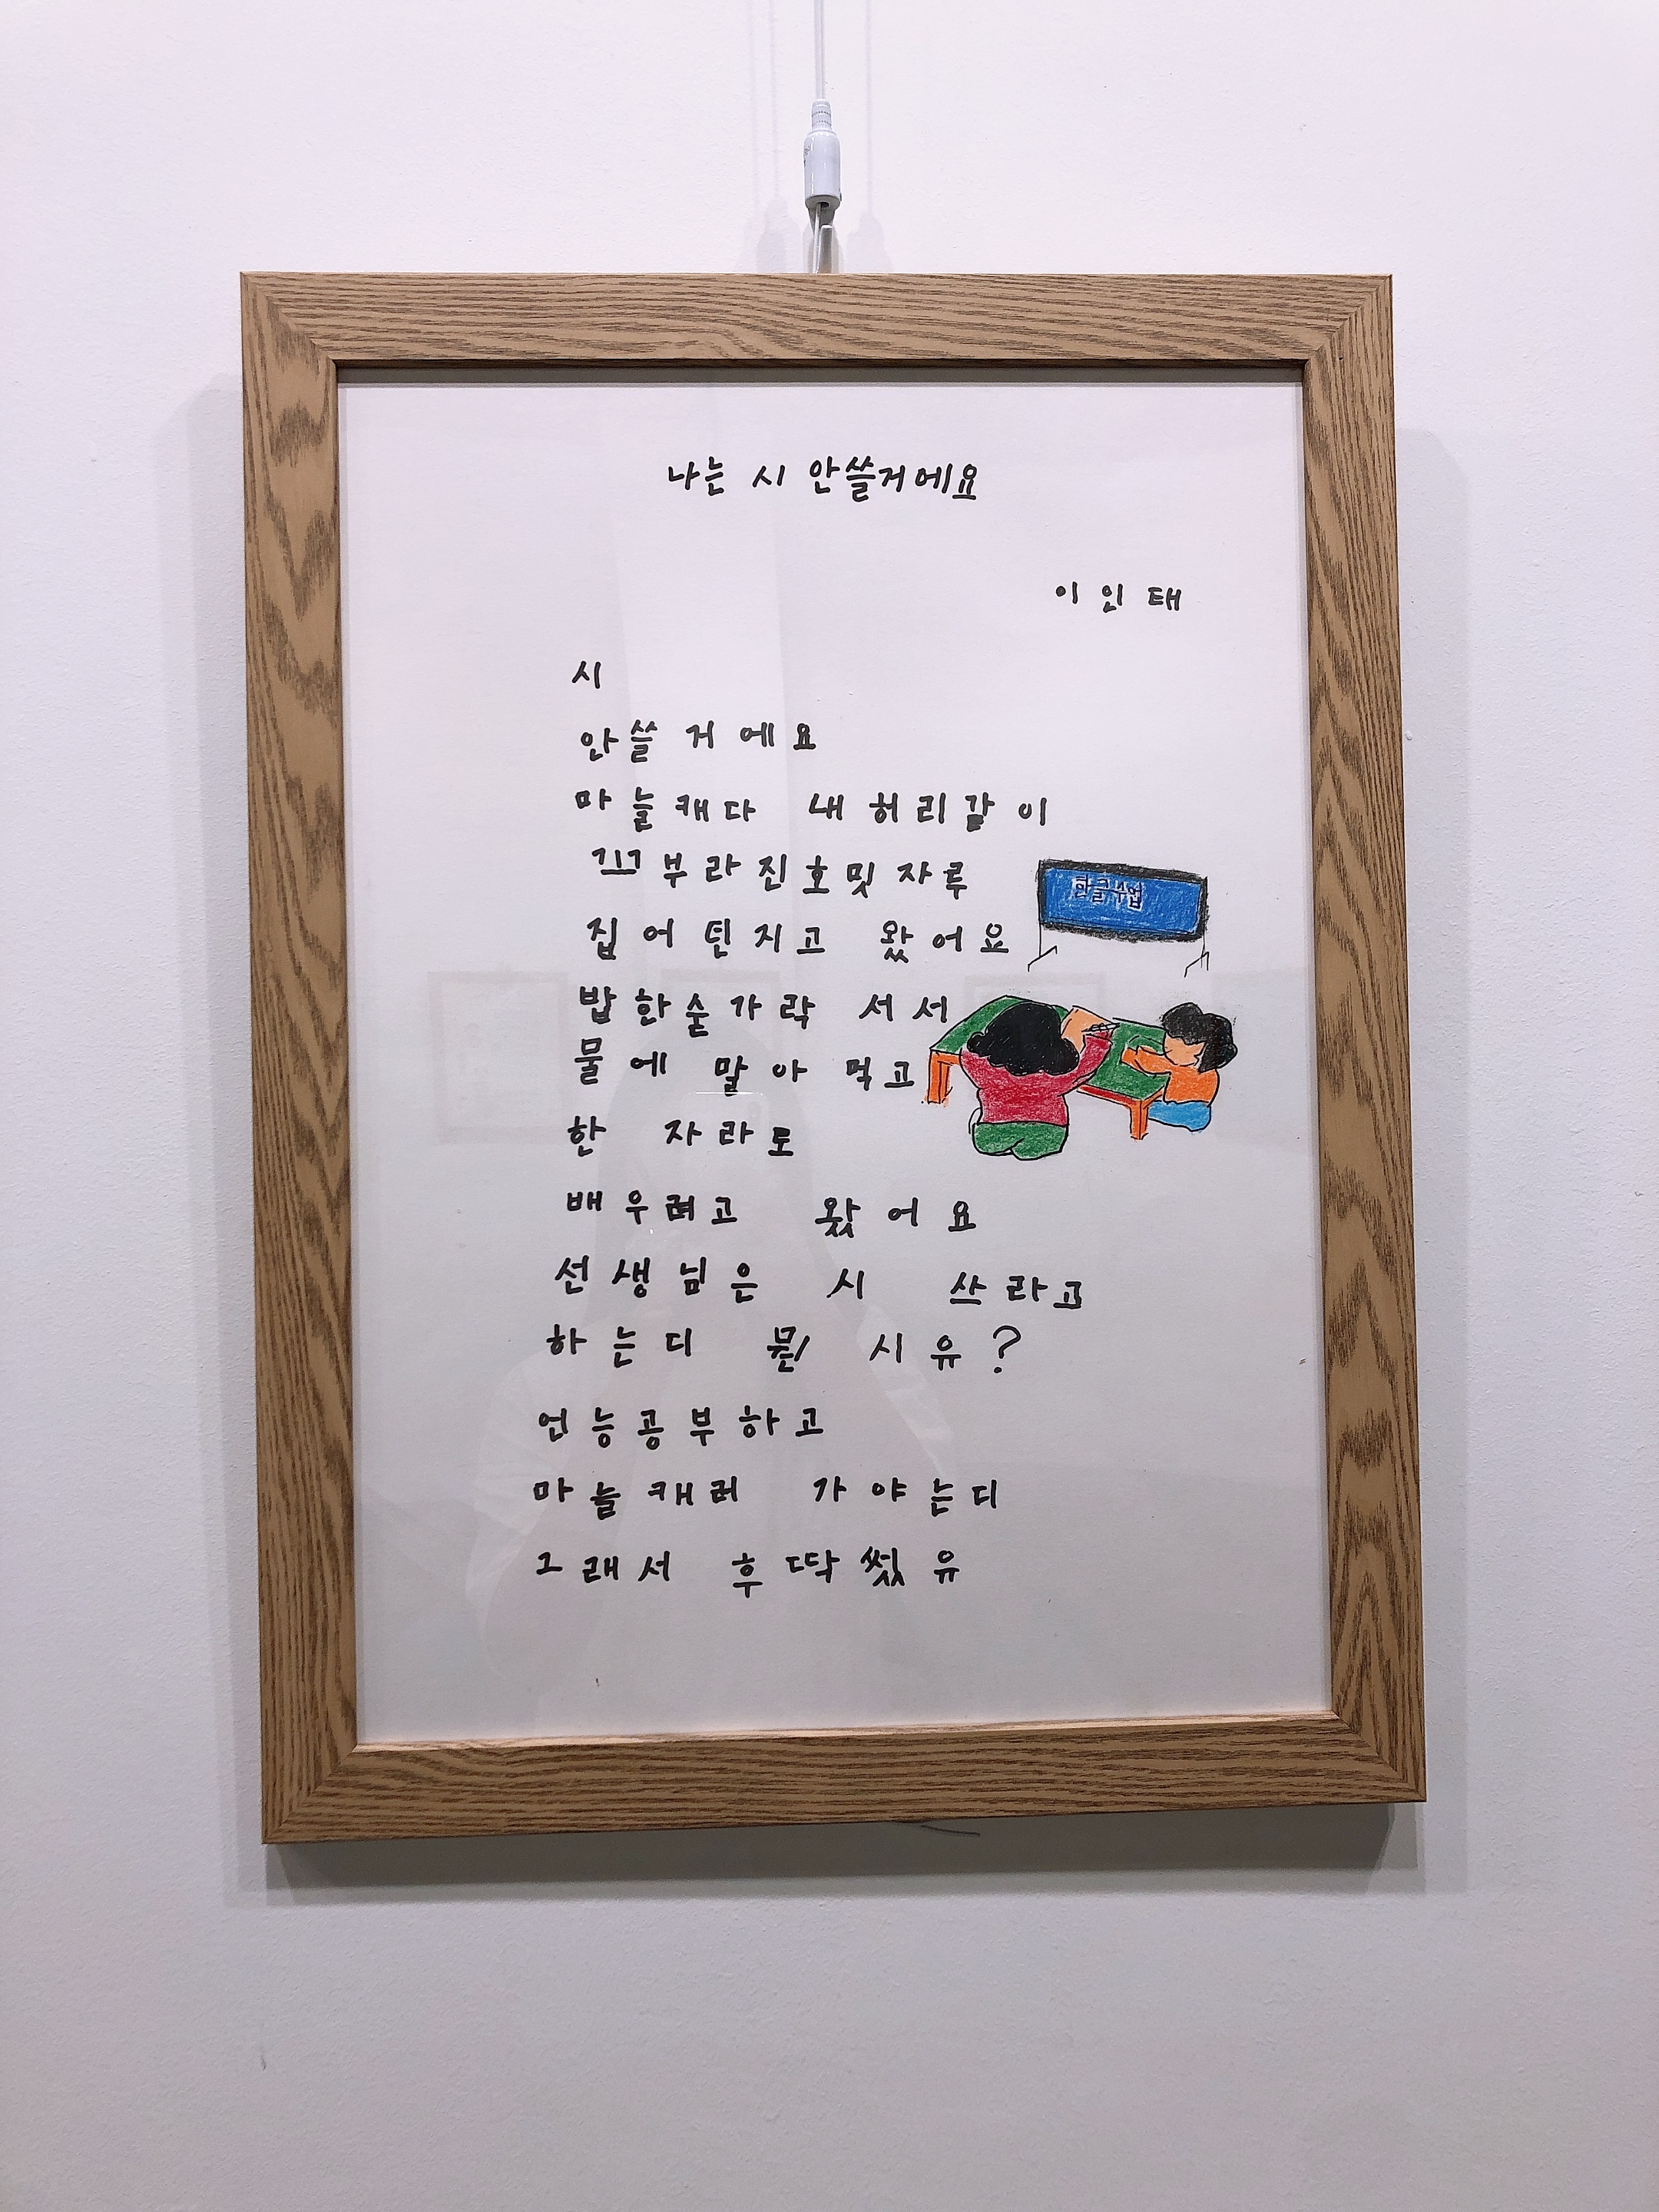 나는 시 안쓸거에요
이인태
시
안쓸거에요
마늘캐다 내허리같이
꼬부라진호밋자루
집어턴지고 왔어요
밥한숟가락 서서
물에 말아 먹고
한 자라도
배우려고 왔어요
한글수업
선생님은 시 쓰라고
하는디 뭔 시유?
언능공부하고
마늘캐러 가야는디
그래서 후딱썼유